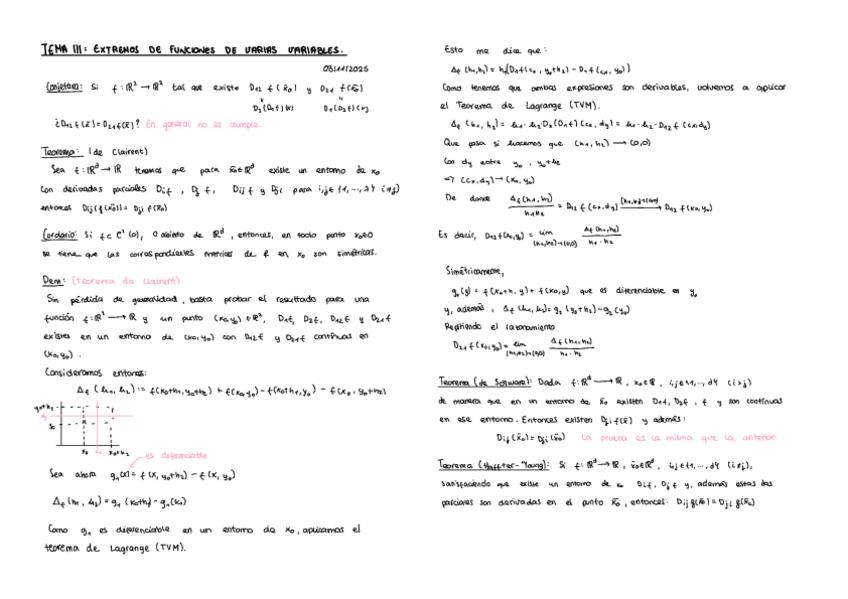 TEMA III: EXTREMOS DE FUNCIONES DE VARIAS VARIABLES.
03/11/2025
Conjetura: Si f: ℝ² → ℝ² tal que existe D₁₂ f(x̄₀) y D₂₁ f(x̄₀)
D₂(D₁f)(x) D₁(D₂f)(x)
¿D₁₂ f(x̄) = D₂₁ f(x̄)? En general no se cumple.
Teorema: (de Clairent)
Sea f: ℝᵈ → ℝ tenemos que para x̄₀∈ℝᵈ existe un entorno de x₀
con derivadas parciales Dᵢf, Dⱼf, Dᵢⱼf y Dⱼᵢ para i,j∈{1,...,d} (i≠j)
entonces Dᵢⱼ f(x̄₀) = Dⱼᵢ f(x̄₀)
Corolario: Si f ∈ C²(O), O abierto de ℝᵈ, entonces, en todo punto x₀∈O
se tiene que las correspondientes matrices de f en x₀ son simétricas.
Dem: (Teorema de Clairent)
Sin pérdida de generalidad, basta probar el resultado para una
función f: ℝ² → ℝ y un punto (x₀,y₀) ∈ ℝ², D₁f, D₂f, D₁₂f y D₂₁f
existen en un entorno de (x₀,y₀) con D₁₂f y D₂₁f continuas en
(x₀,y₀).
Consideramos entonces:
Δf (h₁, h₂) := f(x₀+h₁, y₀+h₂) + f(x₀,y₀) - f(x₀+h₁, y₀) - f(x₀, y₀+h₂)
y₀+h₂
x₀ x₀+h₂
es diferenciable
Sea ahora g₁(x) = f(x, y₀+h₂) - f(x, y₀)
Δf (h₁, h₂) = g₁(x₀+h₁) - g₁(x₀)
Como g₁ es diferenciable en un entorno de x₀, aplicamos el
teorema de Lagrange (TVM).
Esto me dice que:
Δf (h₁,h₂) = h₁(D₁f(cₓ, y₀+h₂) - D₁f(cₓ, y₀))
Como tenemos que ambas expresiones son derivables, volvemos a aplicar
el Teorema de Lagrange (TVM).
Δf (h₁, h₂) = h₁·h₂·D₂(D₁f)(cₓ, dy) = h₁·h₂·D₁₂ f(cₓ,dy)
Que pasa si hacemos que (h₁,h₂) → (0,0)
Con dy entre y₀, y₀+h₂
=> (cₓ,dy) → (x₀,y₀)
De donde Δf(h₁,h₂)/h₁h₂ = D₁₂ f(cₓ,dy) → D₁₂ f(x₀,y₀)
Es decir, D₁₂f(x₀,y₀) = lim (h₁,h₂)→(0,0) Δf(h₁,h₂)/h₁·h₂
Simétricamente,
g₂(y) = f(x₀+h₁, y) + f(x₀,y) que es diferenciable en y₀
y, además, Δf(h₁,h₂) = g₂(y₀+h₂) - g₂(y₀)
Repitiendo el razonamiento
D₂₁ f(x₀,y₀) = lim (h₁,h₂)→(0,0) Δf(h₁,h₂)/h₁·h₂
Teorema (de Software): Dada f: ℝᵈ → ℝ, x₀∈ℝ, i,j∈{1,...,d} (i≠j)
de manera que en un entorno de x̄₀ existen D₁f, D₂f, f y son continuas
en ese entorno. Entonces existen Dⱼᵢ f(x̄) y además:
Dᵢⱼ(x̄₀) = Dⱼᵢ(x̄₀) La prueba es la misma que la anterior.
Si f: ℝᵈ → ℝ, x̄₀∈ℝᵈ, i,j∈{1,...,d} (i≠j),
satisfaciendo que existe un entorno de x₀ Dᵢf, Dⱼf y, además estas dos
parciales son derivadas en el punto x̄₀, entonces: Dᵢⱼ g(x̄₀) = Dⱼᵢ g(x̄₀)